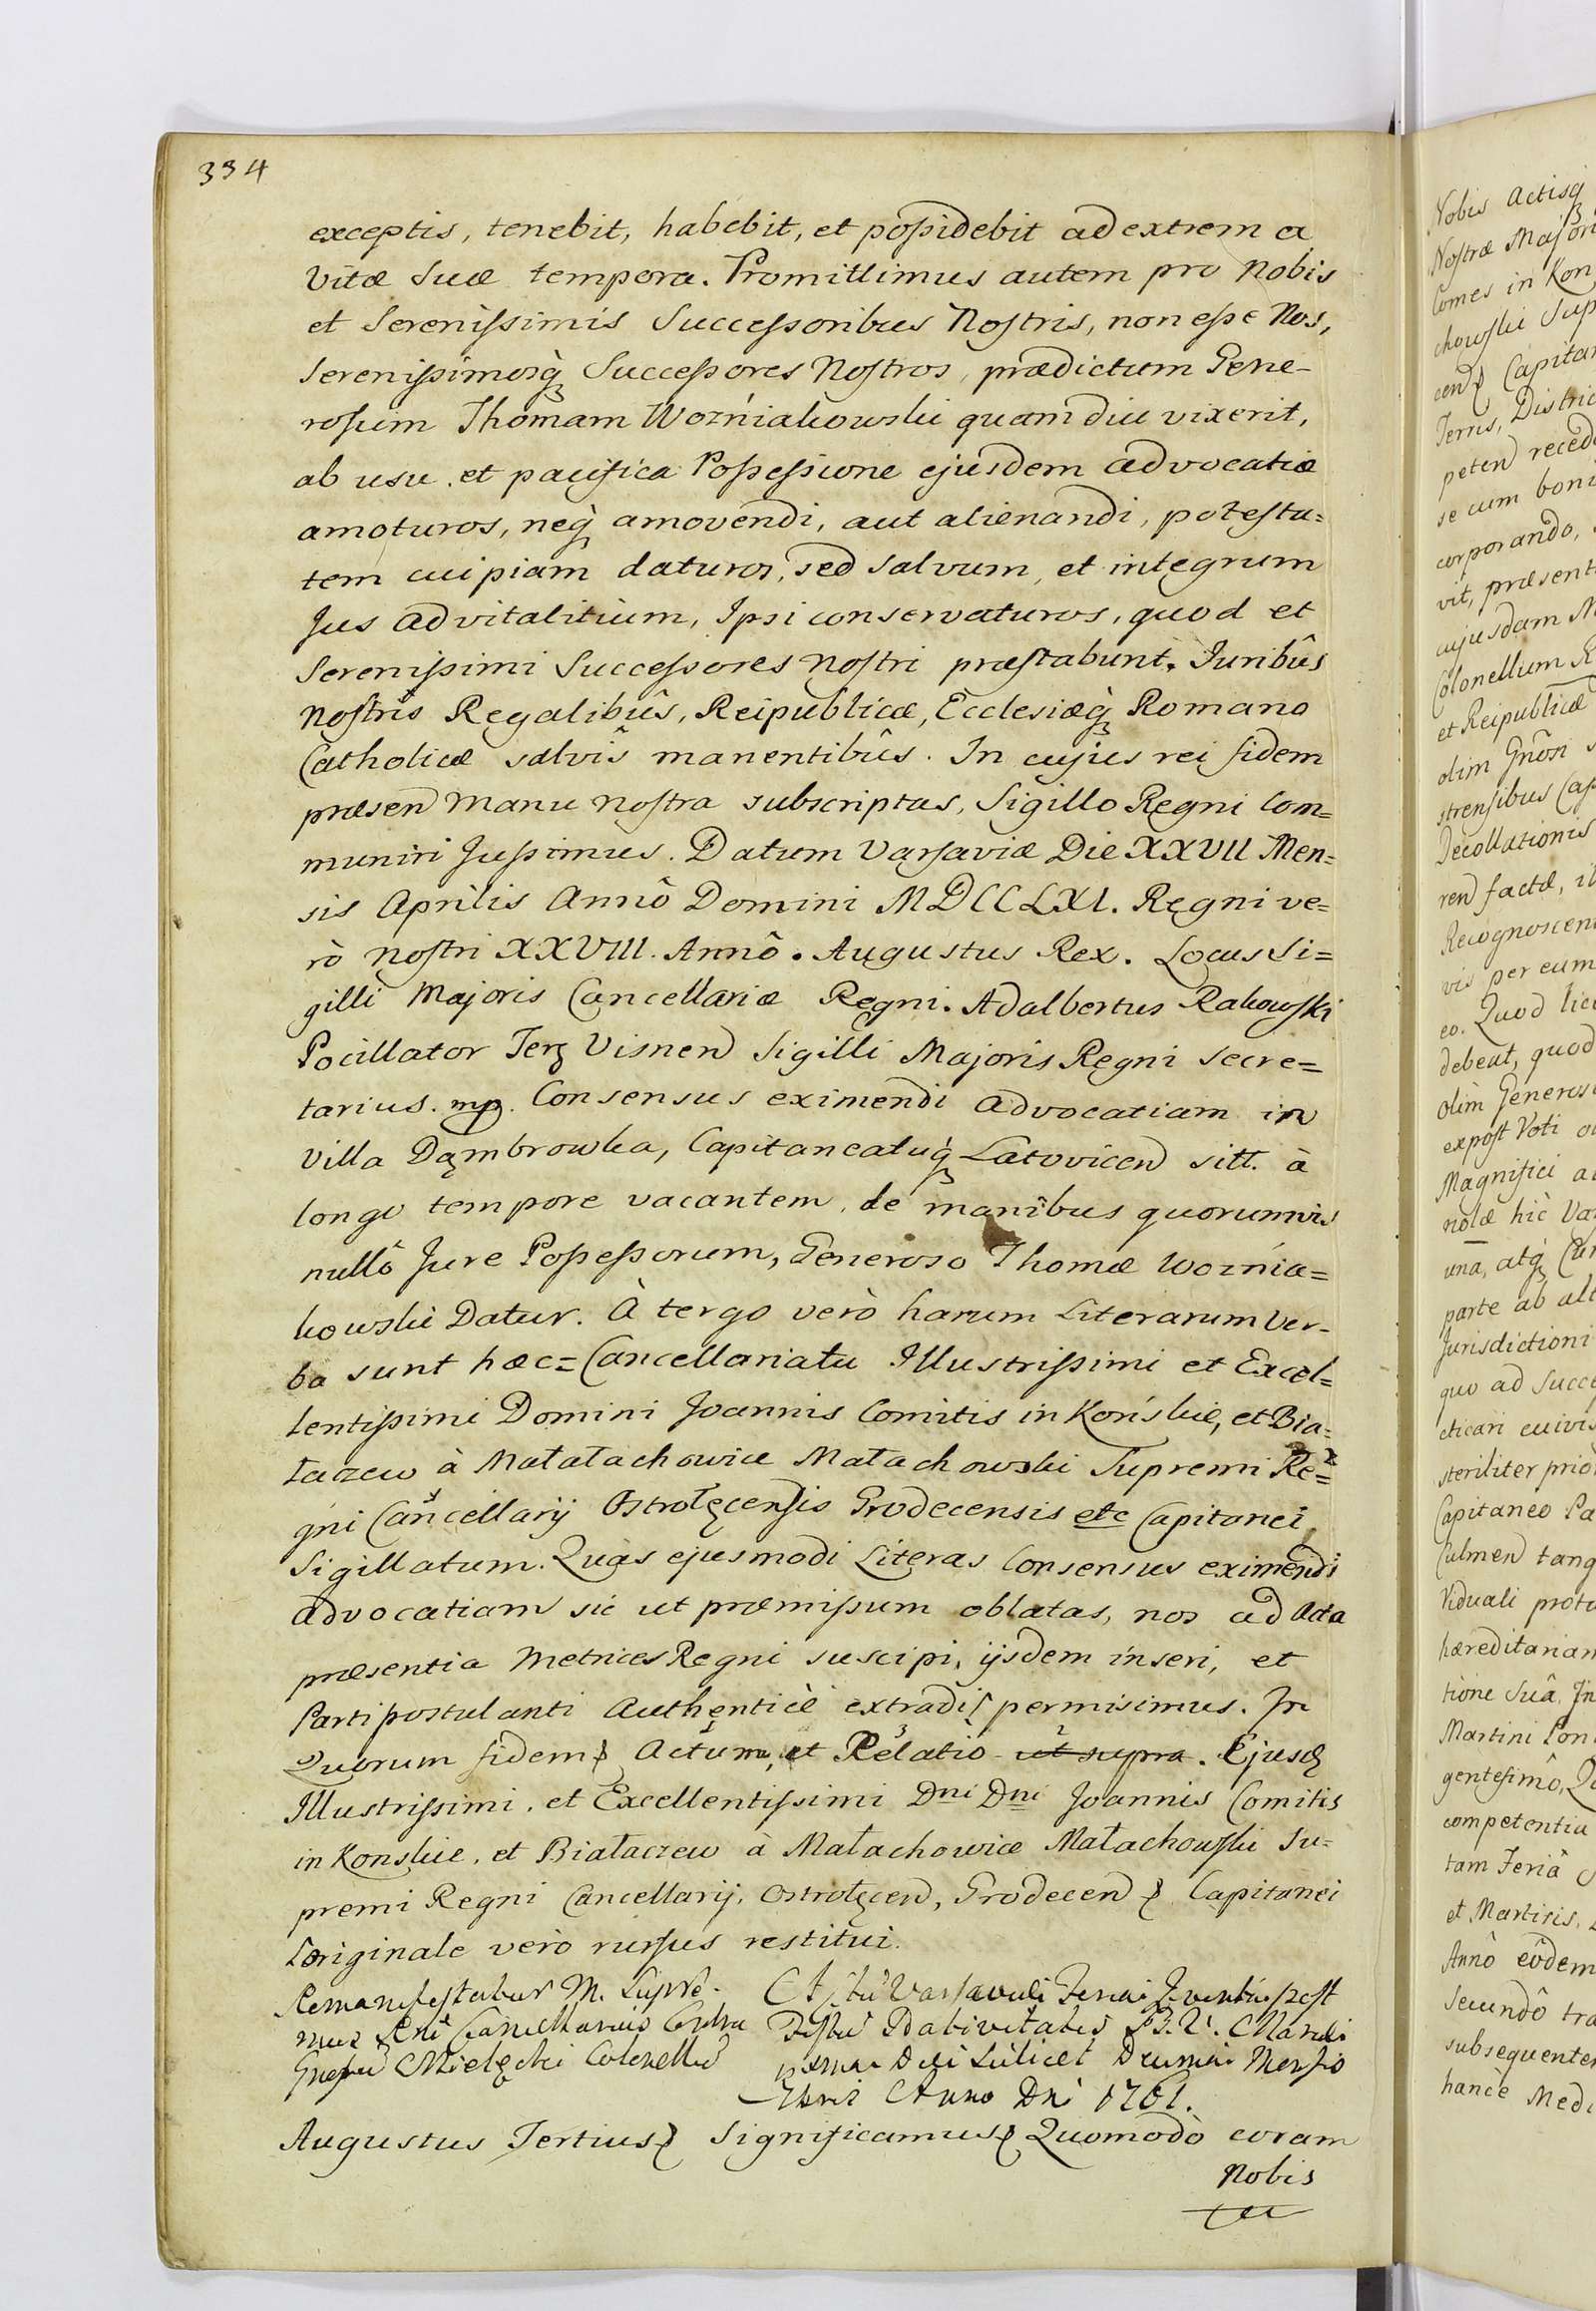 334
exceptis, tenebit, habebit, et possidebit ad extrema
vitæ suæ tempora. Promittimus autem pro Nobis
et Serenissimis Successoribus Nostris, non esse Nos,
Serenissimosq̀ Successores Nostros, prædictum Gene-
rosum Thomam Wozńiakowski quam diu vixerit,
ab usu et pacifica Possessione ejusdem advocatiæ
amoturos, neq̀ amovendi, aut alienandi, potesta=
tem cuipiam daturos, sed salvum, et integrum
Jus advitalitium, Ipsi conservaturos, quod et
Serenissimi Successores Nostri præstabunt. Juribûs
Nostris Regalibûs, Reipublicæ, Ecclesiæq̀ Romano
Catholicæ salvis manentibûs. In cujus rei fidem
præsen manu nostra subscriptas, Sigillo Regni Com=
muniri Jussimus. Datum Varsaviæ Die XXVII Men=
sis Aprilis Annô Domini MDCCLXI. Regni ve=
rò nostri XXVIII. Annô. Augustus Rex. Locus Si=
gilli Majoris Cancellariæ Regni. Adalbertus Rakowski
Pocillator Terr Visnen Sigilli Majoris Regni Secre=
tarius. mp. Consensus eximendi advocatiam in
Villa Dąmbrowka, Capitaneatuq̀ Latovicen sitt. à
longo tempore vacantem, de manibus quorumvis
nullô Jure Possessorum, Generoso Thomæ Wozńia=
kowski Datur. À tergo verò harum Literarum Ver-
ba sunt hæc= Cancellariatu Illustrissimi et Excel=
lentissimi Domini Joannis Comitis in Końskie, et Bia=
łaczew à Małałachowice Małachowski Supremi Re=
gni Cancellarij Ostrołęcensis Grodecensis etc Capitanei
Sigillatum. Quas ejusmodi Literas Consensus eximendi
advocatiam sic ut præmissum oblatas, nos ad Acta
præsentia Metrices Regni suscipi, ijsdem inseri, et
Parti postulanti Authenticè extradi permisimus. In
Quorum fidem Actum, et Relatio ut supra. Ejusd
Illustrissimi, et Excellentissimi Dni Dni Joannis Comitis
in Konskie, et Białaczew à Małachowice Małachowski Su=
premi Regni Cancellarij, Ostrołęcen, Grodecen Capitanei
Originale verò rursus restitui.
M. Supre-
mus Cancellarius
Mielęcki
post
Anno Dni 1761.
Augustus Tertius Significamus Quomodò coram
Nobis
Nobis Actisq̀
Nostræ Majori
Comes in Kon
chowski Sup
cen Capitan
Terris, Distric
peten recede
se cum boni
corporando,
vit, præsent
cujusdam M
Colonellum R
et Reipublicæ
olim Gnôsi
strensibus Cap
Decollationis
ren factæ, i
Recognoscen
vis per eum
eo. Quod lic
debeat, quod
olim Generos
expost Voti
Magnifici a
nolæ hìc Var
una, atq̀ Cu
parte ab alt
Jurisdictioni
quo ad Succe
cticari cuivis
steriliter prio
Capitaneo Pa
Culmen tang
Viduali proto
hæreditariam
tione Suâ. In
Martini Pon
gentesimô, Q
competentiu
tam Feriâ
et Martiris.
Annô eôdem
Secundô tra
subsequente
hancè Medi